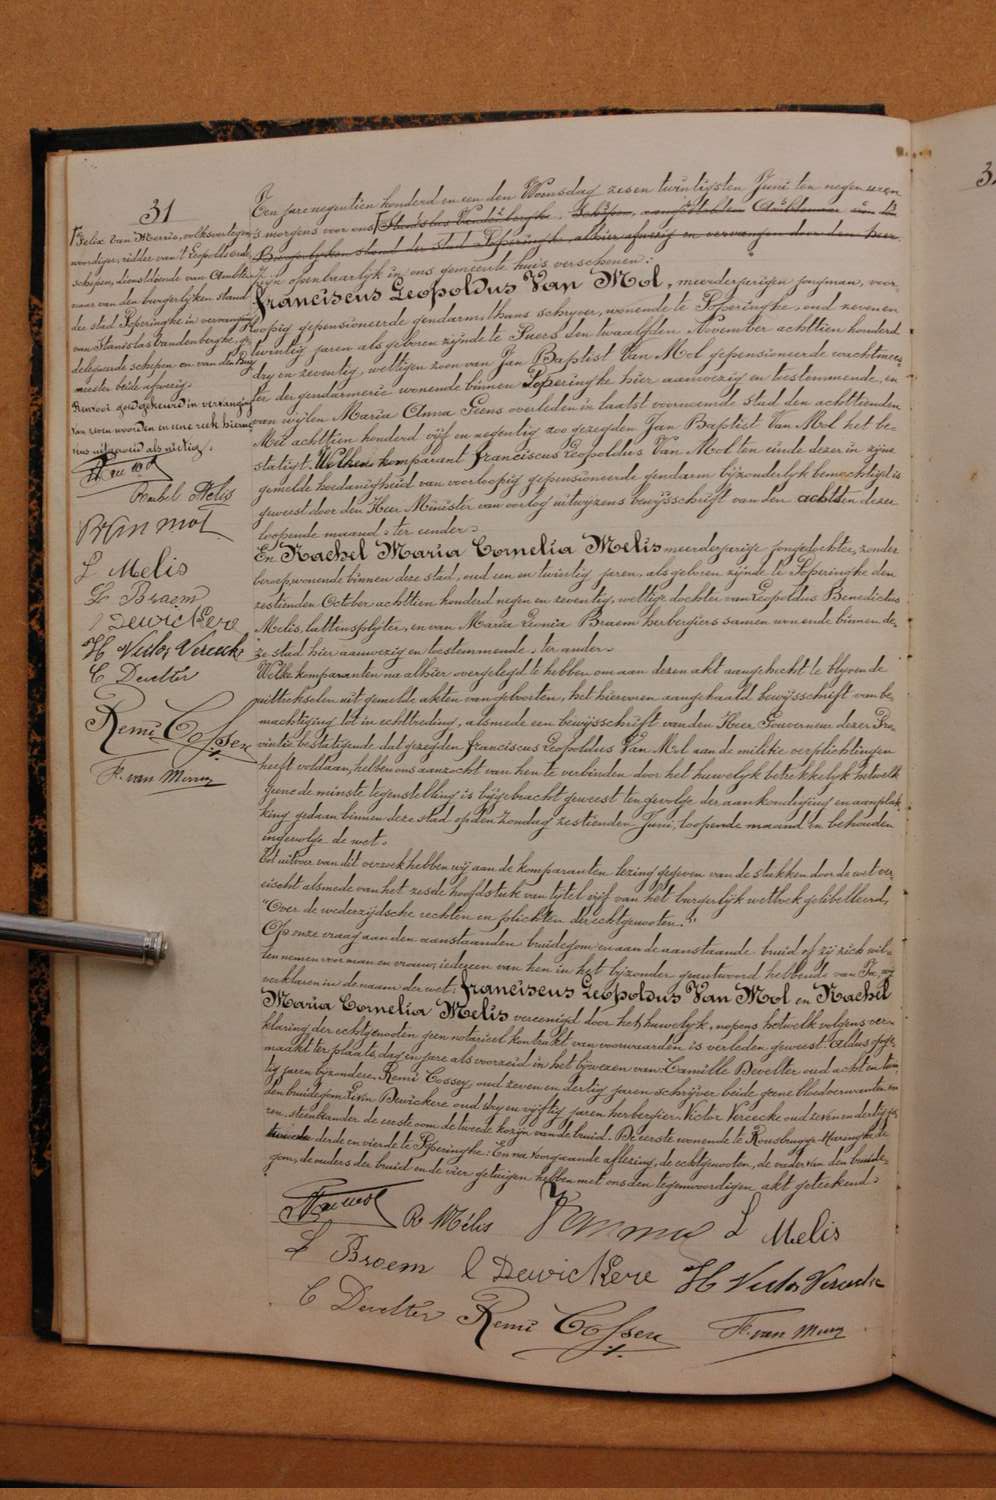 31
Felix Van Merris, volksvertegen-
woordiger, ridder van 't Leopoldsorde,
schepen, dienstdoende van Ambte-
naar van den burgerlyken stand
der stad Poperinghe in vervanging
van Stanislas Vandenberghe, ge-
delegeerde schepen en van den Bur-
meester beide afwezig.
Renvooi goedgekeurd in vervanging
van zeven woorden en eene reek hierne-
vens uitgevaagd als nietig.
Rachel Melis
L Melis
L Braem
L Dewickere
H Victor Vereecke
C Develter
Remi Cossey
F. van Merris
Een jare negentien honderd en een den Woensdag zesen twintigsten Juni ten negen uren
's morgens voor ons Stanislas Vandenberghe, Schepen, Ambtenaar van den
Burgerlyken stand der stad Poperinghe, alhier afwezig en vervangen door den heer
zijn openbaarlyk in ons gemeente huis verschenen:
Franciscus Leopoldus Van Mol, meerderjarigen jongman, voor-
loopig gepensioneerde gendarm, thans schryver, wonende te Poperinghe, oud zevenen
twintig jaren als geboren zijnde te Puers den twaalfsten November achttien honderd
dry en zeventig, wettigen zoon van Jan Baptist Van Mol gepensioneerde wachtmees-
ter der gendarmerie wonende binnen Poperinghe hier aanwezig en toestemmende, en
van wijlen Maria Anna Geens overleden in laatst voornoemde stad den achttienden
Mei achttien honderd vijf en negentig zoo gezegden Jan Baptist Van Mol het be-
statigt. Welken komparant Franciscus Leopoldus Van Mol ten einde dezer in zijne
gemelde hoedanigheid van voorloopig gepensioneerde gendarm bijzonderlyk bemachtigd is
geweest door den Heer Minister van oorlog uitwyzens bewijsschrift van den achtsten dezer
loopende maand, ter eender.
En Rachel Maria Cornelia Melis meerderjarige jongedochter, zonder
beroep, wonende binnen deze stad, oud een en twintig jaren, als geboren zijnde te Poperinghe den
zestienden October achttien honderd negen en zeventig, wettige dochter van Leopoldus Benedictus
Melis, lattensplyter, en van Maria Leonia Braem herbergiers samen wonende binnen de-
ze stad hier aanwezig en toestemmende, ter ander.
Welke komparanten na alhier overgelegd te hebben om aan dezen akt aangehecht te blyven de
uittreksels uit gemelde akten van geboorten, het hiervoren aangehaald bewijsschrift van be-
machtiging tot in echttreding, alsmede een bewijsschrift van den Heer Gouverneur dezer Pro-
vintie bestatigende dat gezegden Franciscus Leopoldus Van Mol aan de militie verplichtingen
heeft voldaan, hebben ons aanzocht van hen te verbinden door het huwelyk betrekkelyk hetwelk
geene de minste tegenstelling is bijgebracht geweest ten gevolge der aankondiging en aanplak-
king gedaan binnen deze stad op den Zondag zestienden Juni, loopende maand en behouden
ingevolge de wet.
Tot uitvoer van dit verzoek hebben wij aan de komparanten lezing gegeven van de stukken door de wet ver-
eischt alsmede van het zesde hoofdstuk van tytel vijf van het burgerlyk wetboek gelibelleerd,
"Over de wederzijdsche rechten en plichten der echtgenooten."
Op onze vraag aan den aanstaanden bruidegom en aan de aanstaande bruid of zij zich wil-
len nemen voor man en vrouw, iedereen van hen in het bijzonder geantwoord hebbende van Ja, wij
verklaren in de naam der wet: Franciscus Leopoldus Van Mol en Rachel
Maria Cornelia Melis vereenigd door het huwelyk, nopens hetwelk volgens ver-
klaring der echtgenooten geen notarieel kontrakt van voorwaarden is verleden geweest. Aldus opge-
maakt ter plaats, dag en jare als voorzeid in het bijwezen van Camille Develter oud acht en twin-
tig jaren byzondere, Remi Cossey, oud zeven en dertig jaren schrijver beide geene bloedverwanten van
den bruidegom, Livin Dewickere oud dry en vijftig jaren herbergier, Victor Vereecke oud zeven en dertig ja-
ren, steenbander de eerste oom de tweede kozijn van de bruid. De eerste wonende te Rousbrugge Haringhe de
tweede derde en vierde te Poperinghe: En na voorgaande aflezing, de echtgenooten, de vader van den bruide-
gom, de ouders der bruid en de vier getuigen hebben met ons den tegenwoordigen akt geteekend.
R Mélis
L Melis
L Braem
L Dewickere
H Victor Vereecke
C Develter
Remi Cossey
F. van Merris